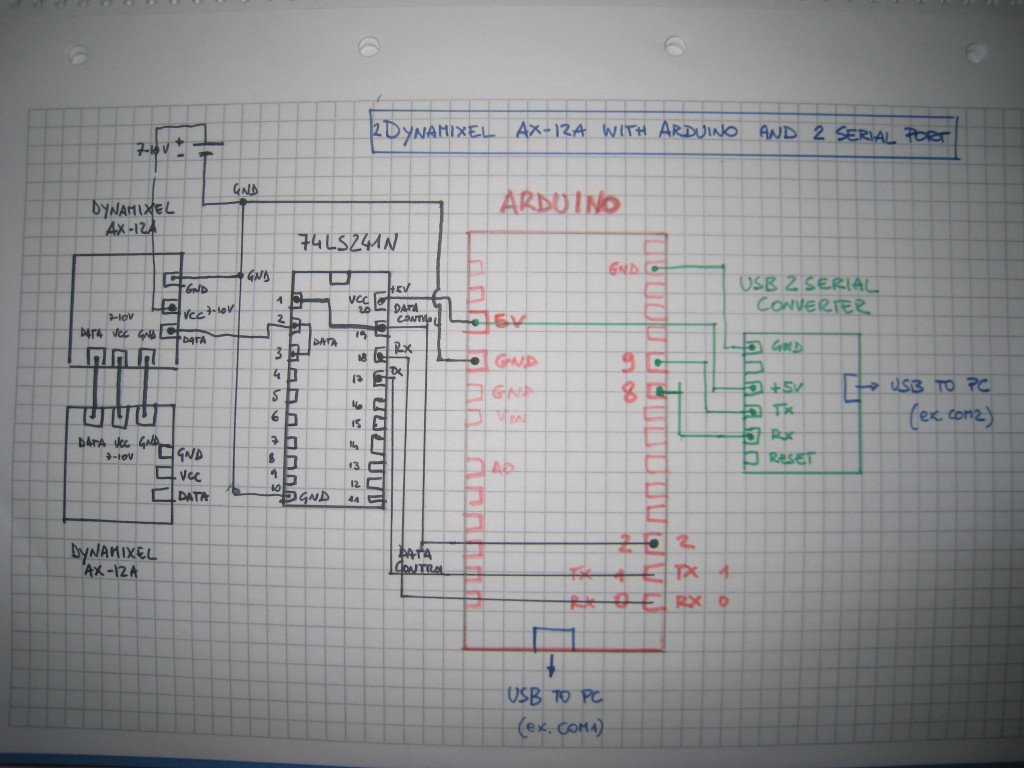 2 DYNAMIXEL AX-12A WITH ARDUINO AND 2 SERIAL PORT
7-10V + -
GND
DYNAMIXEL
AX-12A
GND
GND
VCC 7-10V
DATA
7-10V
DATA VCC GND
DATA VCC GND
7-10V
GND
VCC
DATA
DYNAMIXEL
AX-12A
74LS241N
1
2
3
4
5
6
7
8
9
10
GND
DATA
+5V
VCC
20
DATA
CONTROL
19
RX
18
TX
17
16
15
14
13
12
11
DATA
CONTROL
ARDUINO
5V
GND
GND
VIN
AD
GND
9
8
2 2
TX 1 TX 1
RX 0 RX 0
USB TO PC
(ex. COM1)
USB 2 SERIAL
CONVERTER
GND
+5V
TX
RX
RESET
USB TO PC
(ex. COM2)